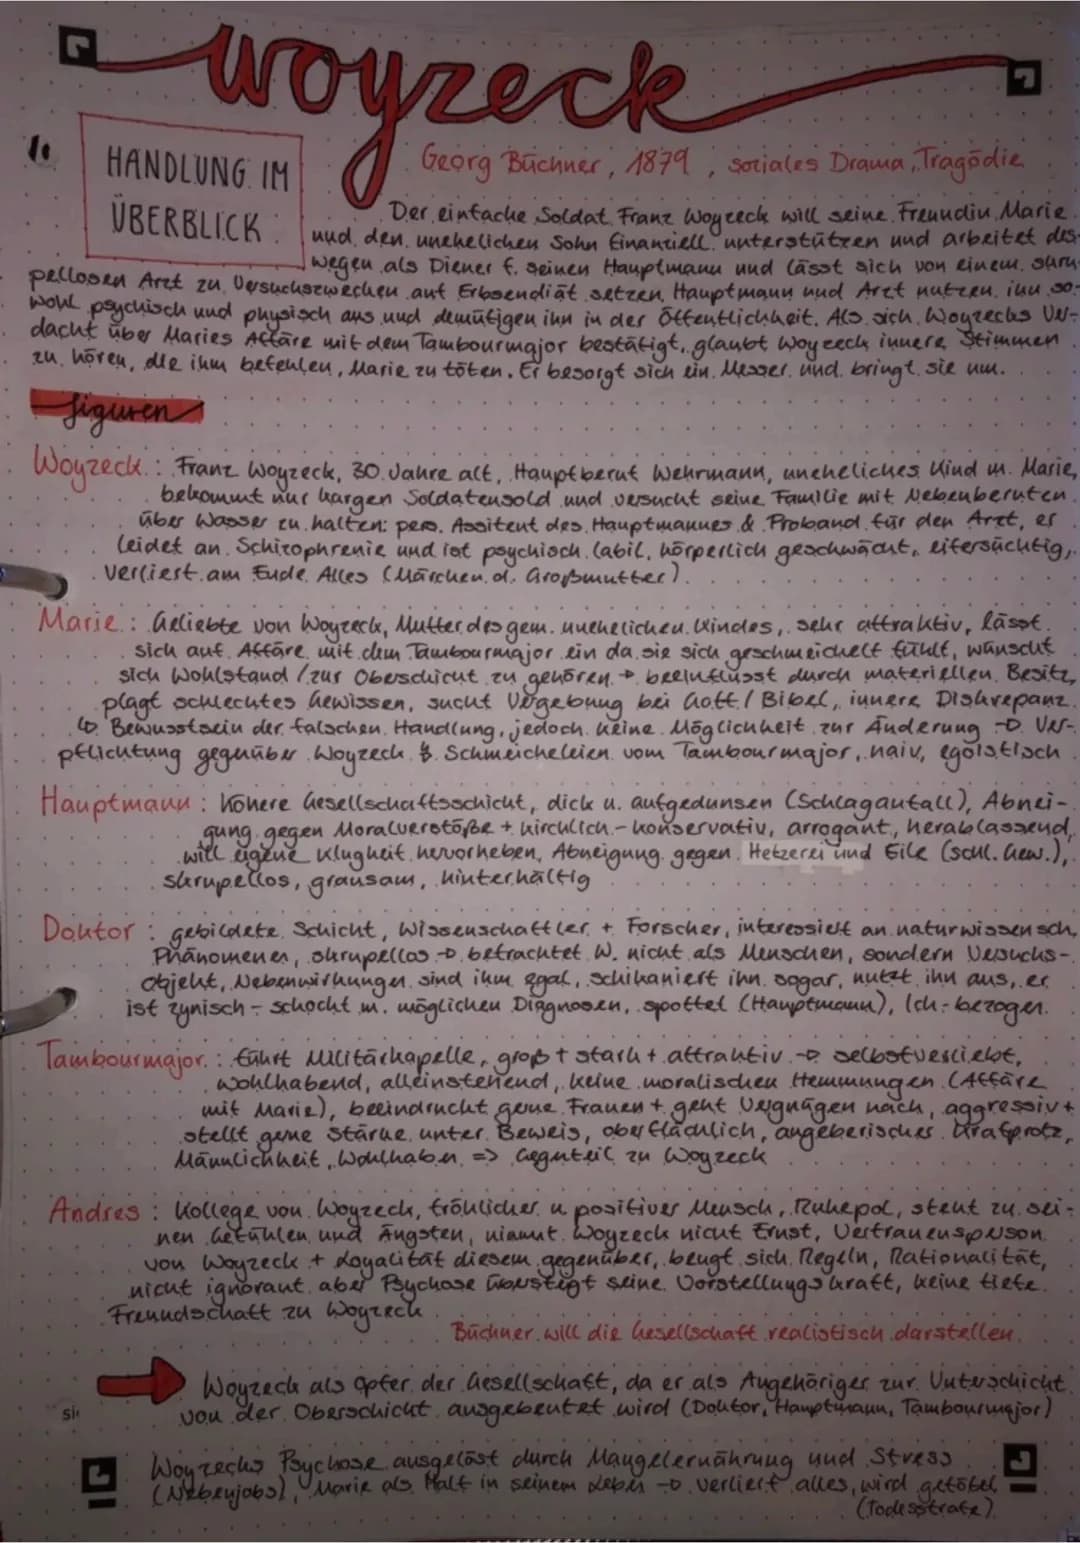 Woyzeck
1.
HANDLUNG IM
ÜBERBLICK:
Georg Büchner, 1879, soziales Drama, Tragödie
Der einfache Soldat Franz Woyzeck will seine Freundin Marie
und den unehelichen Sohn finanziell unterstützen und arbeitet des-
wegen als Diener f. seinen Hauptmann und lässt sich von einem skru-
pellosen Arzt zu Versuchszwecken auf Erbsendiät setzen. Hauptmann und Arzt nutzen ihn so-
wohl psychisch und physisch aus und demütigen ihn in der Öffentlichkeit. Als sich Woyzecks Ver-
dacht über Maries Affäre mit dem Tambourmajor bestätigt, glaubt Woyzeck innere Stimmen
zu hören, die ihm befehlen, Marie zu töten. Er besorgt sich ein Messer und bringt sie um.
figuren
Woyzeck: Franz Woyzeck, 30 Jahre alt, Hauptberuf Wehrmann, uneheliches Kind m. Marie,
bekommt nur kargen Soldatensold und versucht seine Familie mit Nebenberufen
über Wasser zu halten: pers. Assitent des Hauptmannes & Proband für den Arzt, er
leidet an Schizophrenie und ist psychisch labil, körperlich geschwächt, eifersüchtig,
verliert am Ende Alles (Märchen d. Großmutter)
Marie: Geliebte von Woyzeck, Mutter des gem. unehelichen Kindes, sehr attraktiv, lässt
sich auf Affäre mit dem Tambourmajor ein da sie sich geschmeichelt fühlt, wünscht
sich Wohlstand / zur Oberschicht zu gehören → beeinflusst durch materiellen Besitz,
plagt schlechtes Gewissen, sucht Vergebung bei Gott / Bibel, innere Diskrepanz
↳ Bewusstsein der falschen Handlung, jedoch keine Möglichkeit zur Änderung → Ver-
pflichtung gegenüber Woyzeck & Schmeicheleien vom Tambourmajor, naiv, egoistisch
Hauptmann: höhere Gesellschaftsschicht, dick u. aufgedunsen (Schlaganfall), Abnei-
gung gegen Moralverstöße + kirchlich-konservativ, arrogant, herablassend,
will eigene Klugheit hervorheben, Abneigung gegen Hetzerei und Eile (schl. Gew.),
skrupellos, grausam, hinterhältig
Doktor: gebildete Schicht, Wissenschaftler + Forscher, interessiert an naturwissensch.
Phänomenen, skrupellos → betrachtet W. nicht als Menschen, sondern Versuchs-
objekt, Nebenwirkungen sind ihm egal, schikaniert ihn sogar, nutzt ihn aus, er
ist zynisch - schockt m. möglichen Diagnosen, spottet (Hauptmann), Ich-bezogen.
Tambourmajor: führt Militärkapelle, groß + stark + attraktiv → selbstverliebt,
wohlhabend, alleinstehend, keine moralischen Hemmungen (Affäre
mit Marie), beeindruckt gerne Frauen + geht Vergnügen nach, aggressiv +
stellt gerne Stärke unter Beweis, oberflächlich, angeberischer Kraftprotz,
Männlichkeit, Wohlhaben => Gegenteil zu Woyzeck
Andres: Kollege von Woyzeck, fröhlicher u positiver Mensch, Ruhepol, steht zu sei-
nen Gefühlen und Ängsten, nimmt Woyzeck nicht Ernst, Vertrauensperson
von Woyzeck + Loyalität diesem gegenüber, beugt sich Regeln, Rationalität,
nicht ignorant aber Psychose übersteigt seine Vorstellungskraft, keine tiefe
Freundschaft zu Woyzeck
Büchner will die Gesellschaft realistisch darstellen.
Woyzeck als Opfer der Gesellschaft, da er als Angehöriger zur Unterschicht
von der Oberschicht ausgebeutet wird (Doktor, Hauptmann, Tambourmajor)
Woyzecks Psychose ausgelöst durch Mangelernährung und Stress
(Nebenjobs), Marie als Halt in seinem Leben → verliert alles, wird getötet
(Todesstrafe)